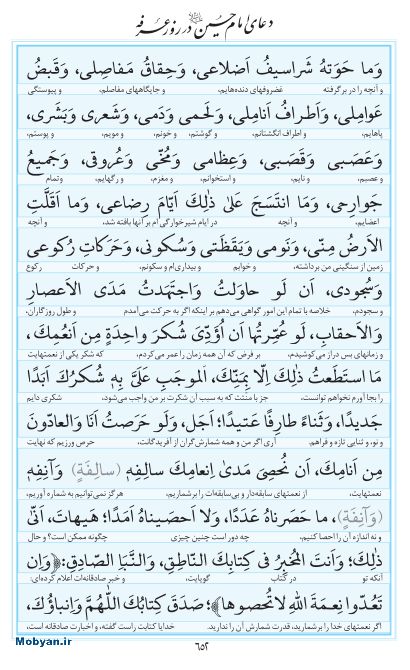 دعای امام حسین در روز عرفه
وَما حَوَتهُ شَراسیفُ اَضلاعی، وَحِقاقُ مَفاصِلی، وَقَبضُ
و آنچه را در بر گرفته غضروفهای دنده‌هایم، و جایگاههای مفاصلم، و پیوستگی
عَوامِلی، وَاَطرافُ اَنامِلی، وَلَحمی وَدَمی، وَشَعری وَبَشَری،
پاهایم، و اطراف انگشتانم، و گوشتم، و خونم، و مویم، و پوستم،
وَعَصَبی وَقَصَبی، وَعِظامی وَمُخّی وَعُروقی، وَجَمیعُ
و عصبم، و نایم، و استخوانم، و مغزم، و رگهایم، وتمام
جَوارِحی، وَمَا انتَسَجَ عَلیٰ ذٰلِكَ اَیّامَ رِضاعی، وَما اَقَلَّتِ
اعضایم، و آنچه در ایام شیرخوارگی ام بر آنها بافته شد، و آنچه
الاَرضُ مِنّی، وَنَومی وَیَقظَتی وَسُکونی، وَحَرَکاتِ رُکوعی
زمین از سنگینی من برداشته، و خوابم و بیداری‌ام و سکونم، و حرکات رکوع
وَسُجودی، اَن لَو حاوَلتُ وَاجتَهَدتُ مَدَی الاَعصارِ
و سجودم، خلاصه با تمام این امور گواهی می‌دهم بر اینکه اگر به حرکت می‌آمدم و طول روزگاران،
وَالاَحقابِ، لَو عُمِّرتُها اَن اُؤَدِّیَ شُکرَ واحِدَةٍ مِن اَنعُمِكَ،
و زمانهای بس دراز می‌کوشیدم، بر فرض که آن همه زمان را عمر می‌کردم، که شکر یکی از نعمتهایت
مَا استَطَعتُ ذٰلِكَ اِلّا بِمَنِّكَ، الموجَبِ عَلَیَّ بِهٖ شُکرُكَ اَبَدًا
را بجا آورم نخواهم توانست، جز با منتت که به سبب آن شکرت بر من واجب می‌شود، شکری دایم
جَدیدًا، وَثَناءً طارِفًا عَتیدًا؛ اَجَل، وَلَو حَرَصتُ اَنَا وَالعادّونَ
و نو، و ثنایی تازه و فراهم. آری اگر من و همه شمارش‌گران از آفریدگانت، حرص ورزیم که نهایت
مِن اَنامِكَ، اَن نُحصِیَ مَدیٰ اِنعامِكَ سالِفِهٖ (سالِفَةً) وَآنِفِهٖ
نعمتهایت، از نعمتهای سابقه‌دار و بی‌سابقه‌ات را برشماریم، هرگز نمی‌توانیم به شماره آوریم،
(وَآنِفَةً)، ما حَصَرناهُ عَدَدًا، وَلا اَحصَیناهُ اَمَدًا؛ هَیهاتَ، اَنّیٰ
و نه اندازه آن را احصا کنیم، چه دور است چنین چیزی چگونه ممکن است؟ و حال
ذٰلِكَ؛ وَاَنتَ المُخبِرُ فی کِتابِكَ النّاطِقِ، وَالنَّبَاِ الصّادِقِ: ﴿وَاِن
آنکه تو در کتاب گویایت، و خبر صادقانه‌ات اعلام کرده‌ای:
تَعُدّوا نِعمَةَ اللهِ لاتُحصوها﴾؛ صَدَقَ کِتابُكَ اللّٰهُمَّ وَاِنباؤُكَ،
اگر نعمتهای خدا را برشمارید، قدرت شمارش آن را ندارید. خدایا کتابت راست گفته، و اخبارت صادقانه است،
۶۵۲
Mobyan.ir